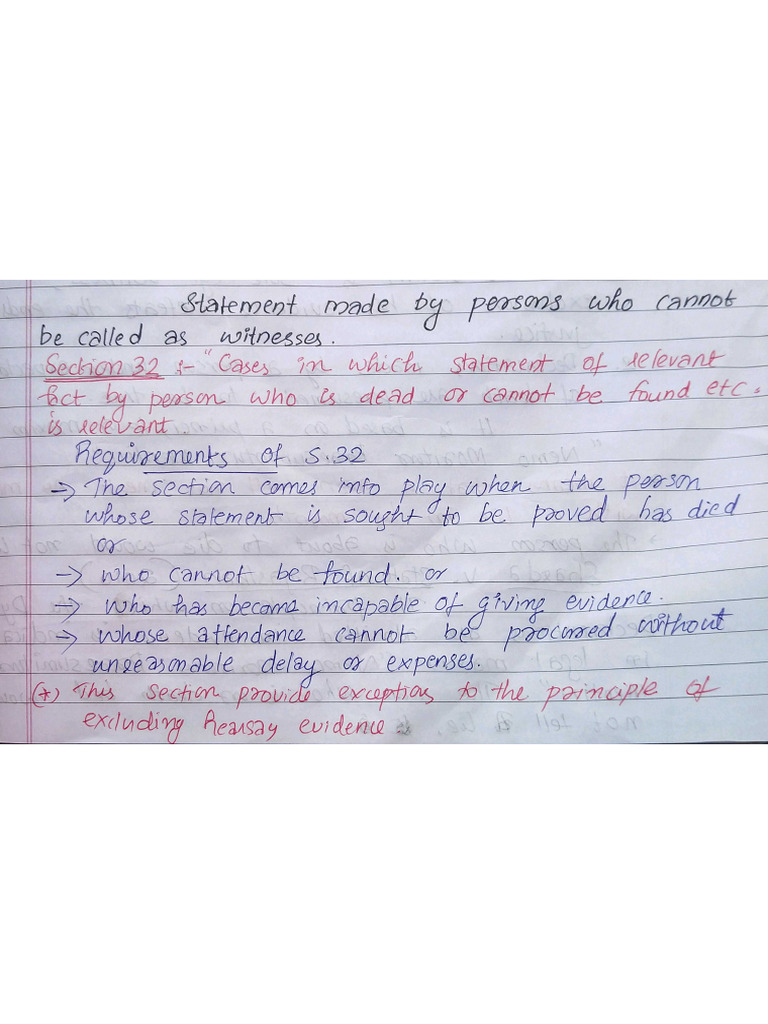 Statement made by persons who cannot
be called as witnesses.
Section 32 :- "Cases in which statement of relevant
fact by person who is dead or cannot be found etc.
is relevant
Requirements of S.32
-> The section comes into play when the person
whose statement is sought to be proved has died
or
-> who cannot be found. or
-> who has become incapable of giving evidence.
-> whose attendance cannot be procured without
unreasonable delay or expenses.
(*) This section provide exceptions to the principle of
excluding Hearsay evidence